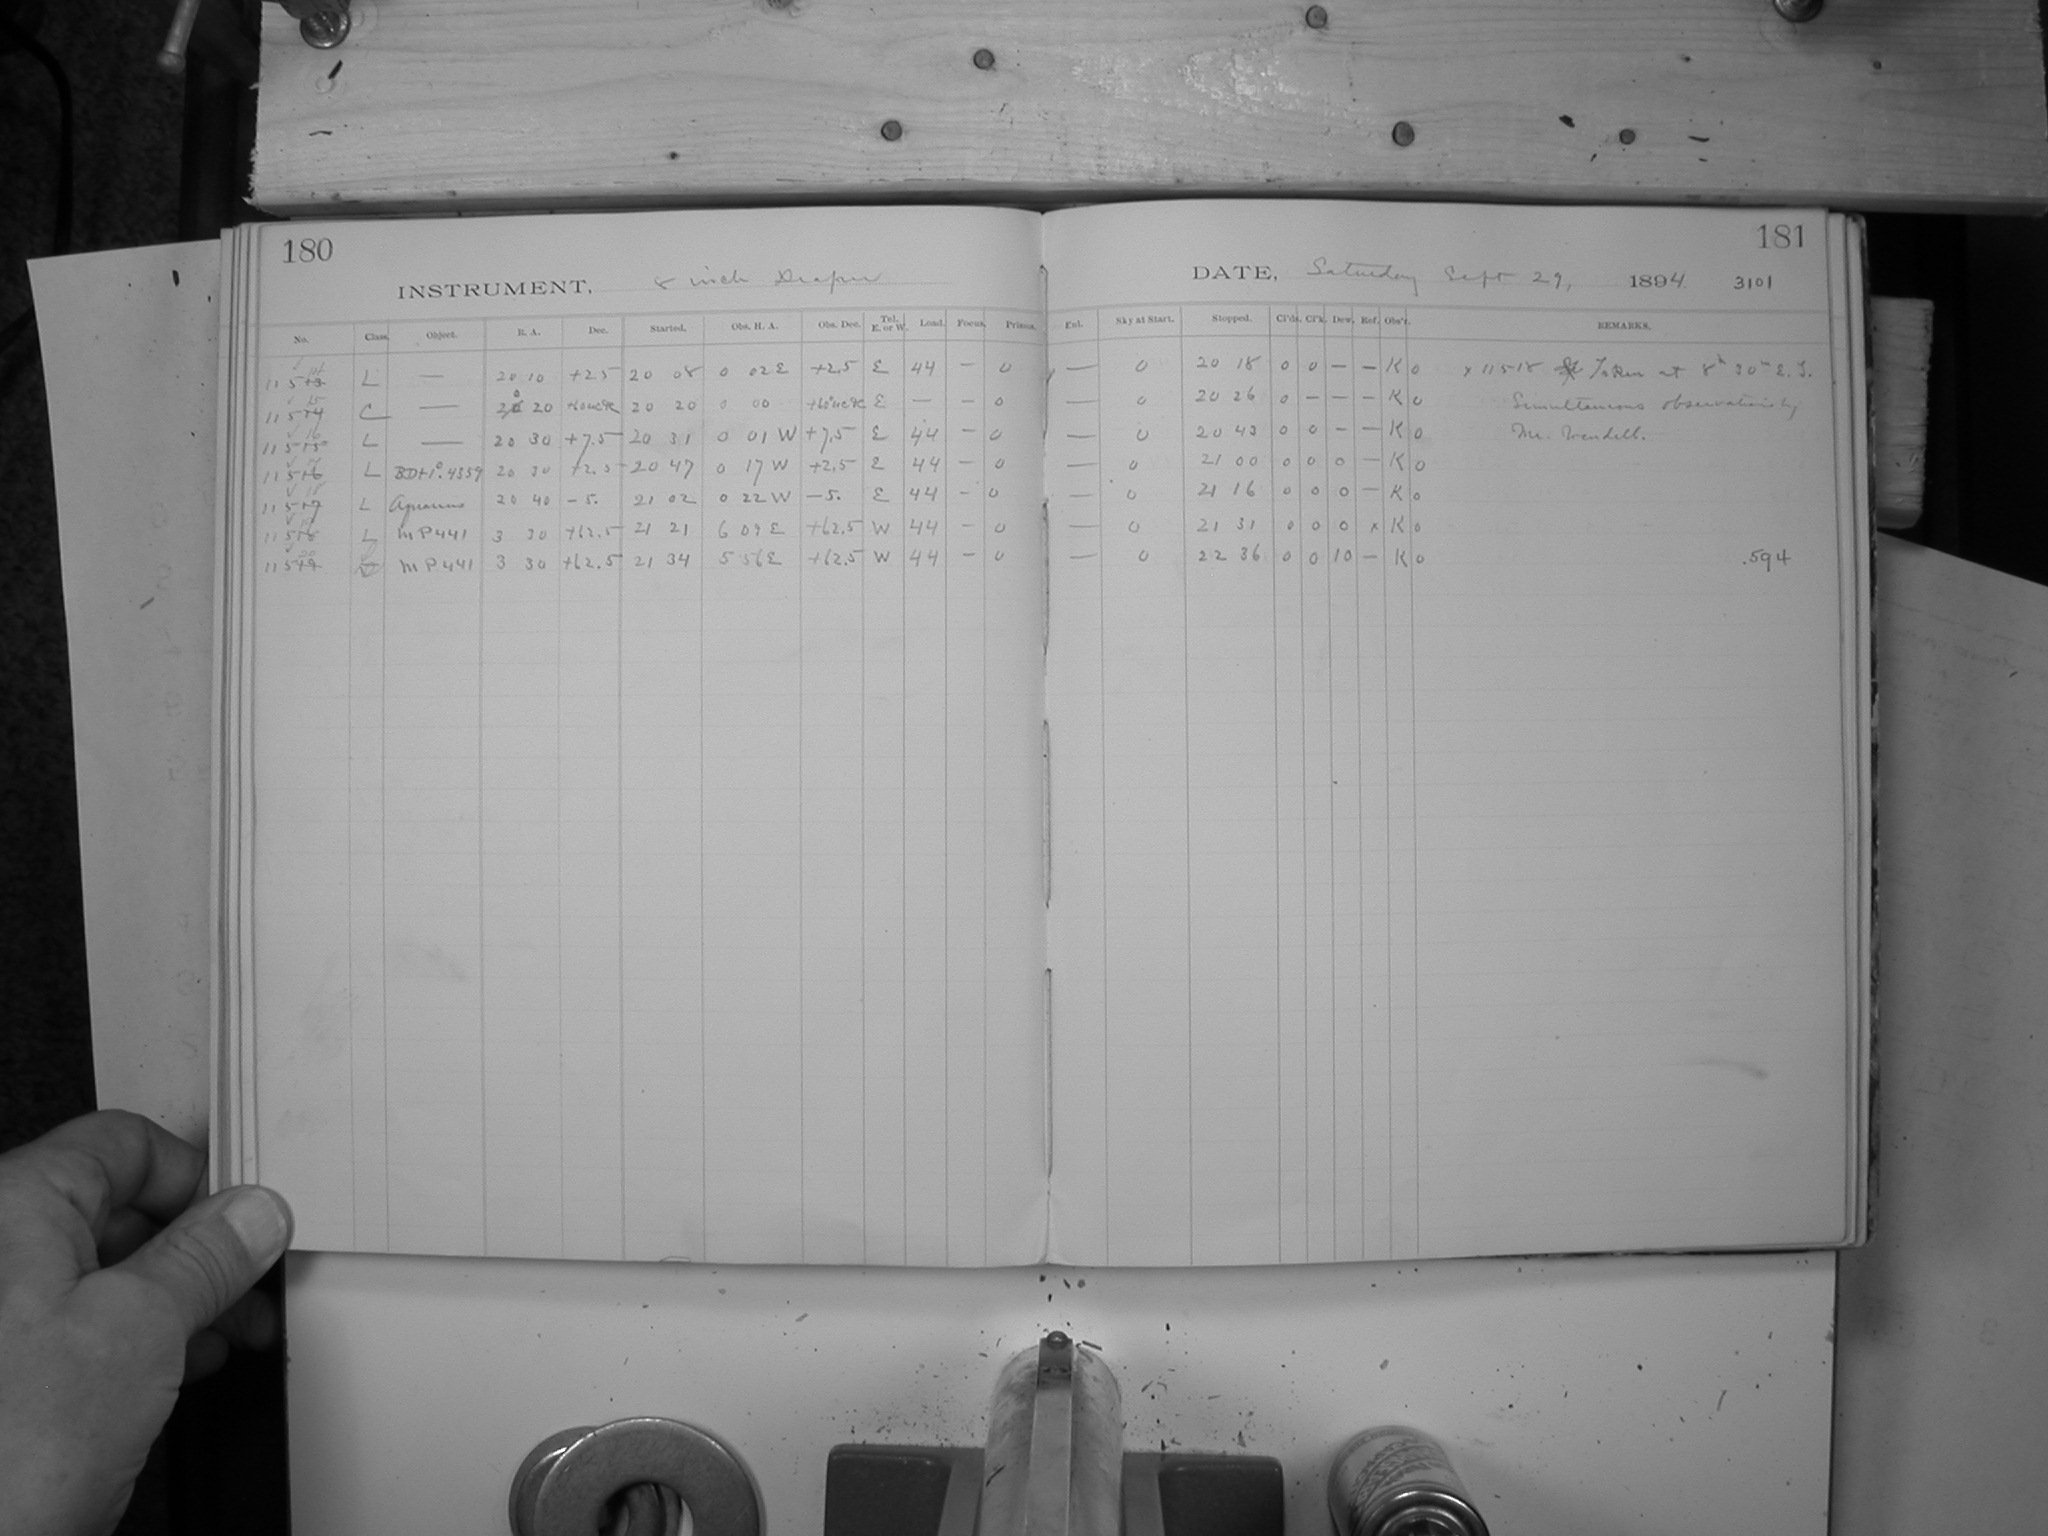 180
181
INSTRUMENT, 8 inch Draper
DATE, Saturday Sept 29, 1894 3101
No. Class. Object. R. A. Dec. Started. Obs. H. A. Obs. Dec. Tel. E. or W. Load. Focus. Prisms. Ent. Sky at Start. Stopped. Cl'ds. Cl'k. Dew. Ref. Obs'r. REMARKS.
11513 14 L — 20 10 +2.5 20 08 0 02 E +2.5 E 44 — 0 — 0 20 18 0 0 — — K 0 x 11518 Taken at 8h 30m E. T.
11514 15 C — 20 20 20 20 0 00 E — — 0 — 0 20 26 0 — — — K 0 Simultaneous observations by
11515 16 L — 20 30 +7.5 20 31 0 01 W +7.5 E 44 — 0 — 0 20 43 0 0 — — K 0 Mr. Wendell.
11516 17 L BD+1°.4359 20 30 +2.5 20 47 0 17 W +2.5 E 44 — 0 — 0 21 00 0 0 0 — K 0
11517 18 L Aquarius 20 40 -5. 21 02 0 22 W -5. E 44 - 0 — 0 21 16 0 0 0 — K 0
11518 19 L MP441 3 30 +62.5 21 21 6 09 E +62.5 W 44 — 0 — 0 21 31 0 0 0 x K 0
11519 20 MP441 3 30 +62.5 21 34 5 56 E +62.5 W 44 — 0 — 0 22 36 0 0 10 — K 0 .594